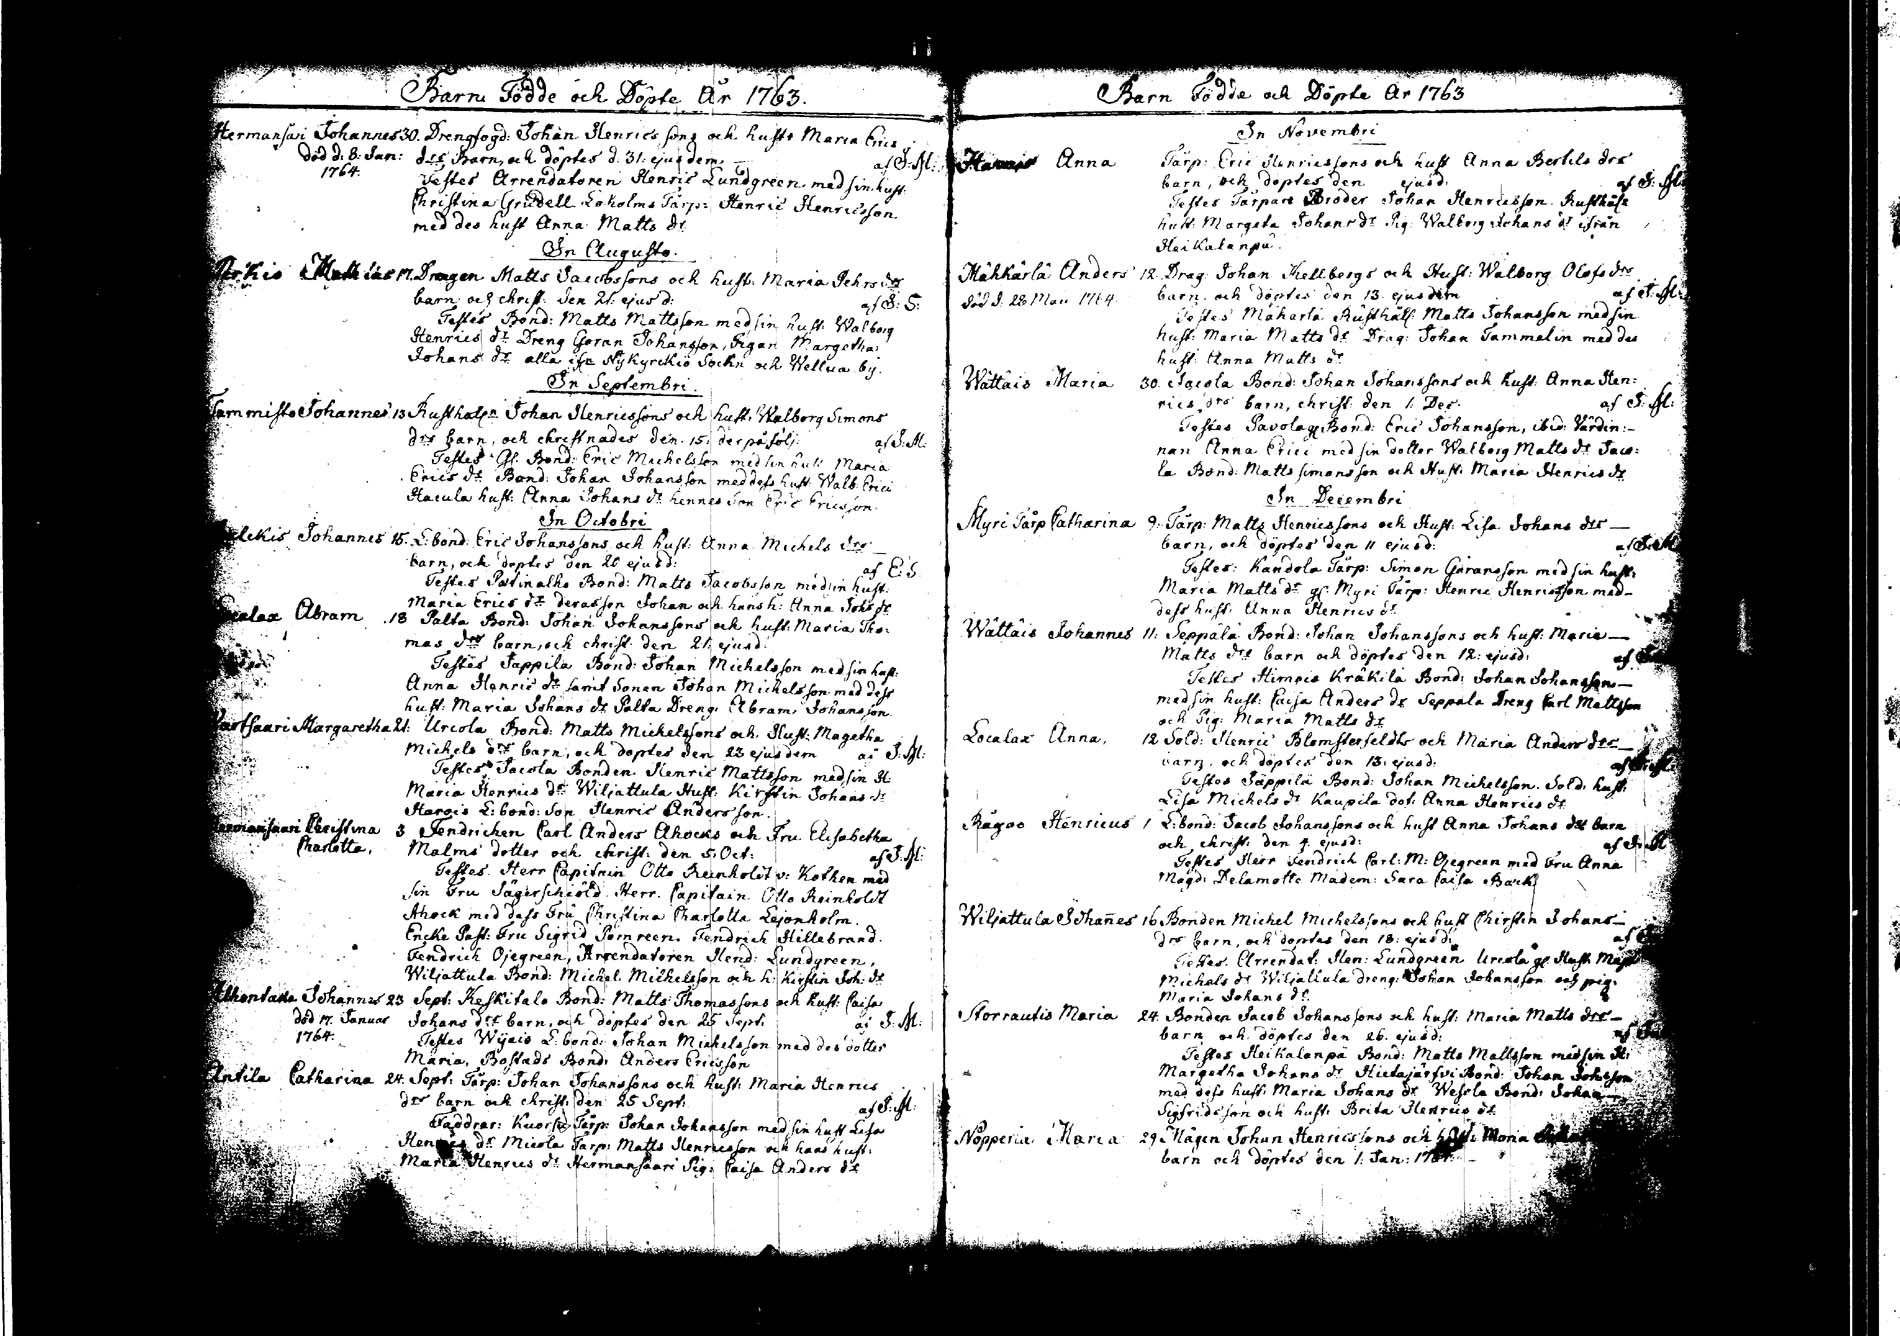 Barn Födde och Döpte År 1763.
Hermansari Johannes 30. Drengfogd: Johan Henrics sons och hust: Maria Erics
död d: 8: Jan: drs Barn, och döptes d. 31: ejusdem. af J: M:
1764. Testes Arrendatoren Henric Lundgreen med sin hust:
Christina Grudell Loholms Tårp: Henric Henricsson
med des hust Anna Matts dr
In Augusto.
Mathias 17. Drengen Matts Jacobssons och hust: Maria Jehrs drs
barn och christ: den 21: ejusd: af E: S:
Testes Bond: Matts Mattsson med sin hust: Walborg
Henrics dr Dreng Göran Johansson, Pigan Margetha
Johans dr alla ifrå Nykyrckio Sochn och Wellua by.
In Septembri.
Tammisto Johannes 13 Rusthåln Johan Henricssons och hust: Walborg Simons
drs barn, och christnades den 15: derpåfölj: af J: M:
Testes Gl: Bond: Eric Michelsson med sin hust: Maria
Erics dr Bond: Johan Johansson med dess hust: Walb: Erici
Hacula hust: Anna Johans dr hennes Son Eric Ericsson.
In Octobri
Johannes 15. L: bond: Eric Johanssons och hust: Anna Michels drs
barn, och döptes den 20 ejusd: af E: S
Testes Patinalho Bond: Matts Jacobsson med sin hust:
Maria Erics dr derasson Johan och hans h: Anna Johs dr
Abram 18 Palta Bond: Johan Johanssons och hust: Maria Tho:
mas drs barn, och christ: den 21: ejusd:
Testes Jappila Bond: Johan Michelsson med sin hust:
Anna Henric dr samt Sonen Johan Michelsson med dess
hust: Maria Johans dr Palta Dreng: Abram Johansson.
Margaretha 21: Urcola Bond: Matts Michelssons och Hust: Magetha
Michels drs barn, och döptes den 23 ejusdem af J: M:
Testes Jacola Bonden Henric Mattsson med sin H:
Maria Henrics dr Wiljattula Hust: Kirstin Johans dr
Hargis L: bond: Son Henric Andersson.
Hermansaari Christina 3 Fendricken Carl Anders Ahocks och Fru Elisabetha
Charlotta, Malms dotter och christ: den 5: Oct: af J: M:
Testes Herr Capitain Otto Reinholdt v: Kothen med
sin Fru Jägerschiöld Herr: Capitain Otto Reinholdt
Ahock med dess Fru Christina Charlotta Lejonholm.
Encke Past: Fru Sigrid Pomreen. Fendrich Hillebrand.
Fendrich Ojegreen, Arrendatoren Hend: Lundgreen,
Wiljattula Bond: Michel Michelsson och h: Kirstin Joh: dr
Johannes 23 Sept. Keskitalo Bond: Matts Thomassons och hust: Caisa
död 17. Januar Johans drs barn, och döptes den 25 Sept: af J: M:
1764. Testes Wijais L: bond: Johan Michelsson med des dotter
Maria, Bostads Bond: Anders Ericsson
Antila Catharina 24. Sept: Tårp: Johan Johanssons och hust: Maria Henrics
drs barn och christ: den 25 Sept: af J: M:
Faddrar: Tårp: Johan Johansson med sin hust Lisa
Henrics dr Micola Tårp: Matts Henricsson och hans hust:
Maria Henrics dr Hermansaari Pig: Caisa Anders dr
Barn Födde och Döpte År 1763
In Novembri
Anna Tårp: Eric Henricssons och hust Anna Bertils drs
barn, och döptes den ejusd. af J: M:
Testes Tårpare Broder Johan Henricsson. Rusthåls
hust: Margeta Johans dr Pig: Walborg Johans dr ifrån
Heikalanpä.
Mähkärlä Anders 12. Drag: Johan Kellbergs och Hust: Walborg Olofs drs
död d. 28 Maii 1764. barn, och döptes den 13. ejusdem af J: M:
Testes Mäkarla Rusthåll: Matts Johansson med sin
hust: Maria Matts dr Drag: Johan Tammelin med des
hust: Anna Matts dr
Wättäis Maria 30. Jacola Bond: Johan Johanssons och hust: Anna Hen:
rics drs barn, christ: den 1: Dec: af J: M:
Testes Pavola Bond: Eric Johansson, ibid: Värdin:-
nan Anna Erici med sin dotter Walborg Matts dr Jaco:
la Bond: Matts simonsson och Hust: Maria Henrics dr
In Decembri
Myri Tårp Catharina 9: Tårp: Matts Henricssons och Hust: Lisa Johans drs
barn, och döptes den 11 ejusd: af J: M
Testes: Kandola Tårp: Simon Göransson med sin hust:
Maria Matts dr gl: Myri Tårp: Henric Henricsson med
dess hust: Anna Henrics dr
Wättäis Johannes 11: Seppälä Bond: Johan Johanssons och hust: Maria
Matts drs barn och döptes den 12: ejusd: af
Testes Himois Kräkilä Bond: Johan Johansson
med sin hust: Caisa Anders dr Seppala Dreng Carl Mattsson
och Pig: Maria Matts dr
Localax Anna, 12 Sold: Henric Blomsterfeldts och Maria Anders drs
barn, och döptes den 13: ejusd:
Testes Jäppilä Bond: Johan Michelsson. Sold: hust:
Lisa Michels dr Kaupila dot: Anna Henrics dr
Rägoo Henricus 1 L: bond: Jacob Johanssons och hust Anna Johans drs barn
och, christ: den 4. ejusd: af J: M
Testes Herr Fendrich Carl: M: Ojegreen med Fru Anna
Magd: Delamotte Madem: Sara Caisa Back
Wiljattula Johañes 16. Bonden Michel Michelssons och hust Chirstin Johans
drs barn, och döptes den 18: ejusd: af
Testes. Arrendat: Hen: Lundgreen Urcola gl: Hust: Marg:
Michels dr Wiljattula Dreng: Johan Johansson och pig:
Maria Johans dr.
Storrautis Maria 24. Bonden Jacob Johanssons och hust: Maria Matts drs
barn och döptes den 26. ejusd: af
Testes Heikalanpä Bond: Matts Mattsson med sin H:
Margetha Johans dr Hietajärfvi Bond: Johan Johsson
med dess hust: Maria Johans dr Wessla Bond: Johan
Sigfridsson och hust: Brita Henrics dr
Nopperla Maria 29. Hägen Johan Henricssons och hust: Maria
barn och döptes den 1: Jan: 1764.